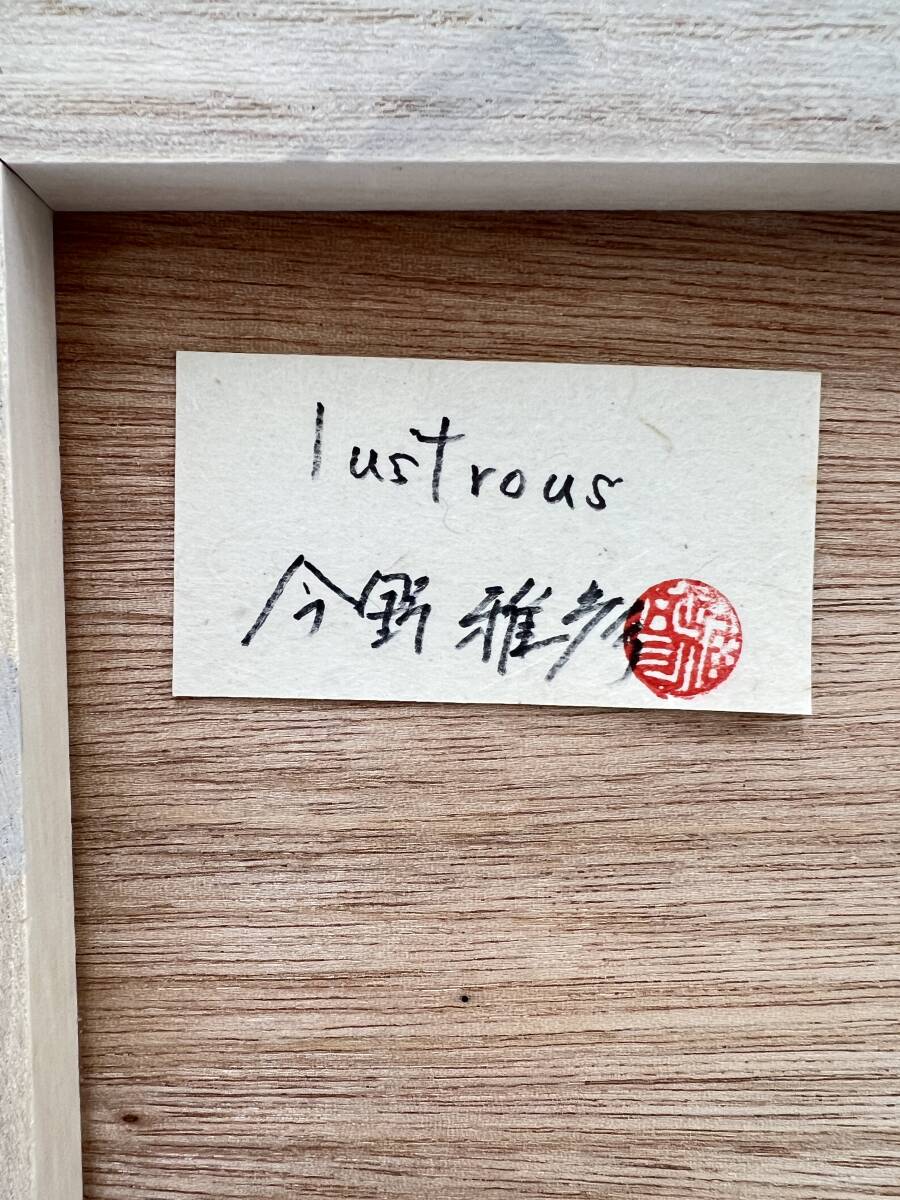 lustrous
今野 雅彦